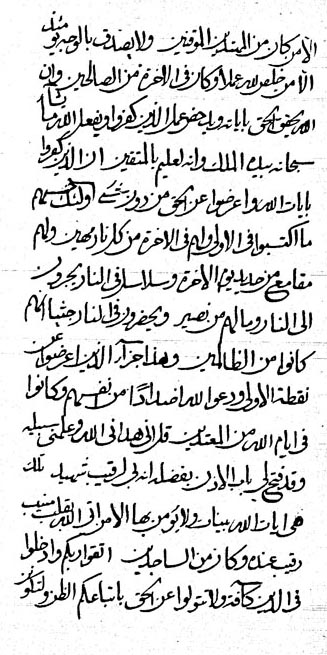 الا من كان من المهتدين الموقنين ولا يصدق بالوحى يومئذ
الا من خلص لله عملا وكان فى الاخرة من الصالحين وان
الله يحق الحق باياته ويدحض عمل الذين كفروا ويفعل الله ما يشآء
سبحانه بيده الملك وانه لعليم بالمتقين ان الذين كفروا
بايات الله واعرضوا عن الحق من دون اولئك
ما اكتسبوا فى الاولى ولهم فى الاخرة من كل نار مهين ولهم
مقامع من حديد يوم الاخرة وسلاسل فى النار يجرون
الى النار وما لهم من نصير ويحضرون فى النار جثيا انهم
كانوا من الظالمين وهذا جزآء الذين اعرضوا عن
نقطة الاولى ودعوا لله اضدادا من انفسهم وكانوا
فى ايام الله من المعتدين قل انى هدانى الله وعلمنى سبيله
وقد فتح لى باب الاذن بفضله انه لى لرقيب شهيد تلك
هى ايات الله بينات ولا يؤمن بها الا من اتى الله بقلب منيب
رقيب عنده وكان من الساجدين اتقوا ربكم وادخلوا
فى الدين كآفة ولا تتولوا عن الحق باتباعكم الظن ولتكونن